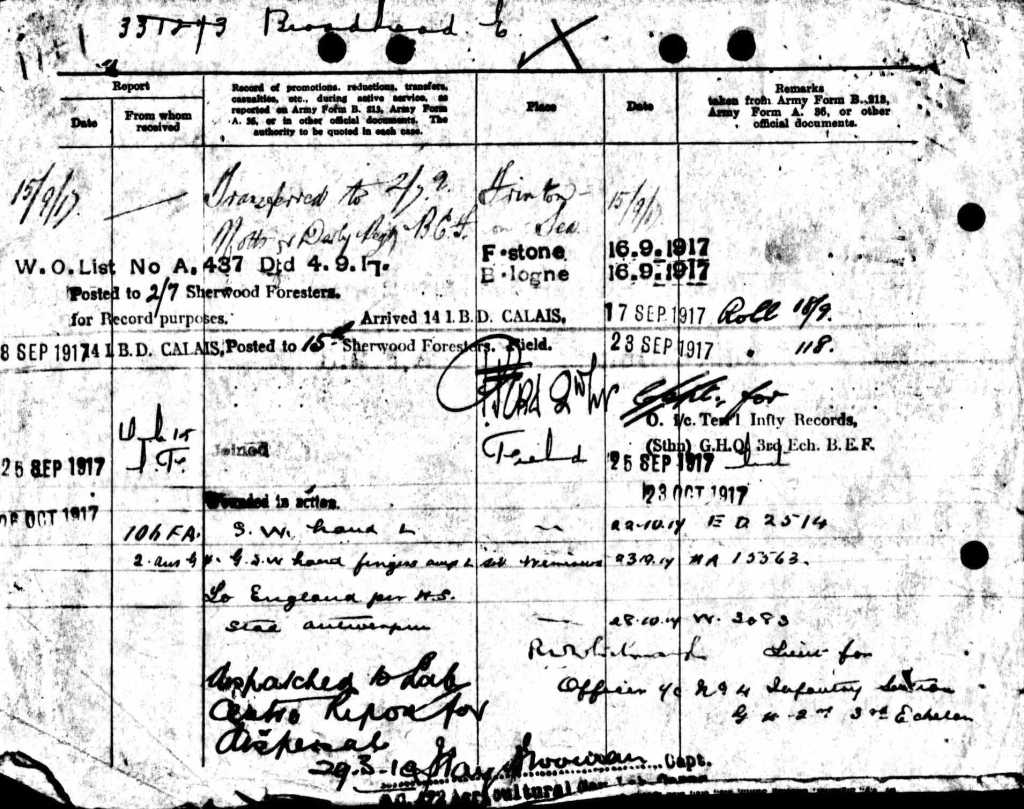 Broadhead E
Report
Date
From whom received
Record of promotions, reductions, transfers, casualties, etc., during active service, as reported on Army Form B. 213, Army Form A. 36, or in other official documents. The authority to be quoted in each case.
Place
Date
Remarks taken from Army Form B. 213, Army Form A. 36, or other official documents.
15/9/17. Transferred to 2/7 Frinton- 15/9/17
Notts & Derby Regt B.E.F. on Sea
F.stone 16.9.1917
W.O. List No A. 437 Dtd 4.9.17. B.logne 16.9.1917
Posted to 2/7 Sherwood Foresters.
for Record purposes. Arrived 14 I.B.D. CALAIS, 17 SEP 1917 Roll 18/9.
8 SEP 1917 14 I.B.D. CALAIS, Posted to 15th Sherwood Foresters. Field. 23 SEP 1917 118.
Capt. for
O. i/c. Terr'l Infty Records,
(Sthn) G.H.Q. 3rd Ech. B.E.F.
25 SEP 1917 Joined Field 25 SEP 1917
Wounded in action. 23 OCT 1917
OCT 1917
106 FA. S. W. hand L 22.10.17 E D 2514
2. Aus G.S.W hand fingers amp L 23.10.17 HA 15563.
To England per H.S.
Stad Antwerpen 28.10.17 W. 3083
Lieut for
Officer i/c No 4 Infantry Section
G H Q 3rd Echelon
Despatched to Lab
Centre Ripon for
Dispersal
29.3.19 Capt.
Agricultural